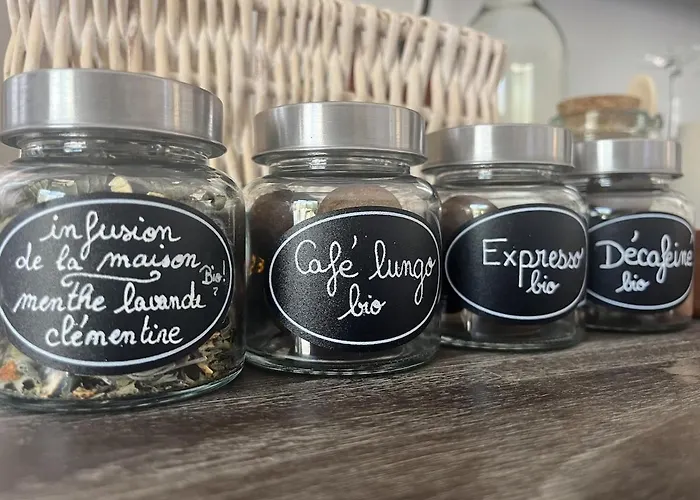 infusion
de la maison
Bio!
?
menthe lavande
clémentine
Café lungo
bio
Expresso
bio
Décafeiné
bio